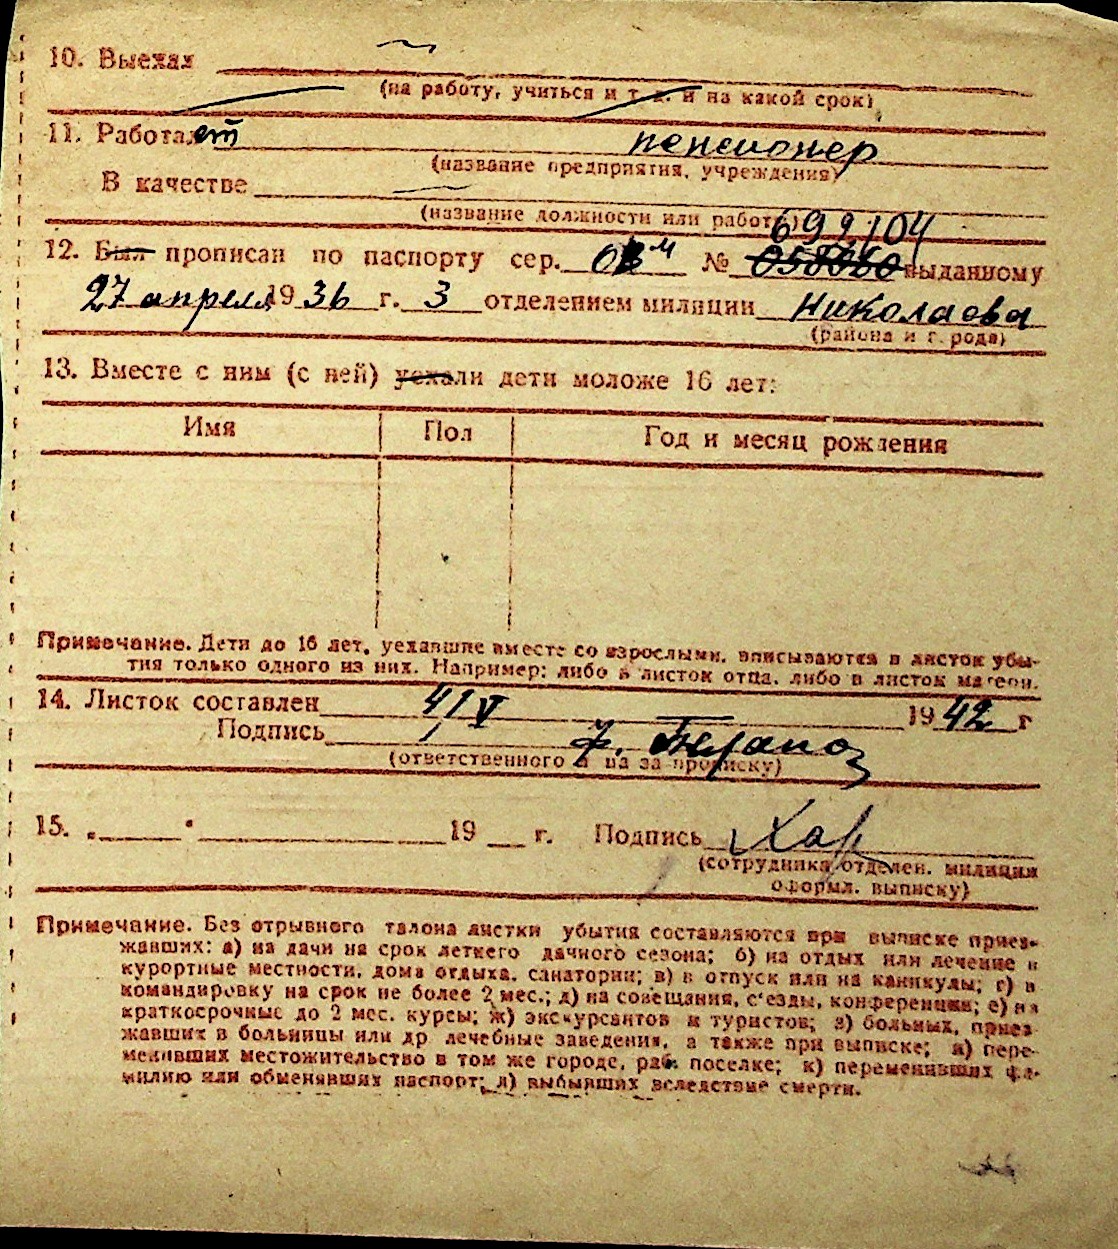 10. Выехал
(на работу, учиться и т. д. и на какой срок)
11. Работает пенсионер
(название предприятия, учреждения)
В качестве
(название должности или работы) 699104
12. Был прописан по паспорту сер. № 058060 выданному
27 апреля 1936 г. 3 отделением милиции Николаева
(района и города)
13. Вместе с ним (с ней) уехали дети моложе 16 лет:
Имя Пол Год и месяц рождения
Примечание. Дети до 16 лет, уехавшие вместе со взрослыми, вписываются в листок убы-
тия только одного из них. Например: либо в листок отца, либо в листок матери.
14. Листок составлен 4/V 1942 г
Подпись
(ответственного лица за прописку)
15. „ " 19 г. Подпись Хар
(сотрудника отделен. милиции
оформл. выписку)
Примечание. Без отрывного талона листки убытия составляются при выписке приез-
жавших: а) на дачи на срок летнего дачного сезона; б) на отдых или лечение в
курортные местности, дома отдыха, санатории; в) в отпуск или на каникулы; г) в
командировку на срок не более 2 мес.; д) на совещания, с'езды, конференции; е) на
краткосрочные до 2 мес. курсы; ж) экскурсантов и туристов; з) больных, приез-
жавших в больницы или др лечебные заведения, а также при выписке; и) пере-
менивших местожительство в том же городе, раб. поселке; к) переменивших фа-
милию или обменявших паспорт; л) выбывших вследствие смерти.